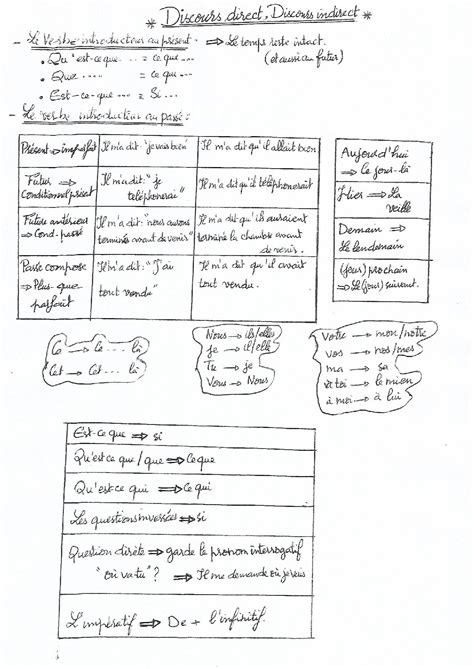 * Discours direct, Discours indirect *
- Le verbe introducteur au présent. ⇒ Le temps reste intact.
• Qu'est-ce que ... = ce que ... (et aussi au futur)
• Que .... = ce que ...
• Est-ce-que ... = Si ...
- Le verbe introducteur au passé :
Présent ⇒ imparfait
Il m'a dit : "je vais bien"
Il m'a dit qu'il allait bien
Futur ⇒
Conditionnel présent
Il m'a dit : "je
téléphonerai"
Il m'a dit qu'il téléphonerait
Futur antérieur
⇒ Cond. passé
Il m'a dit : "nous aurons
terminé avant de venir"
Il m'a dit qu'ils auraient
terminé la chambre avant
de venir.
Passé composé
⇒ Plus-que
parfait
Il m'a dit : "J'ai
tout vendu"
Il m'a dit qu'il avait
tout vendu.
Aujourd'hui
⇒ Ce jour-là
Hier ⇒ La
veille
Demain ⇒
Le lendemain
(jeu) prochain
⇒ Le (jour) suivant.
Ce → ce ... là
Cet → Cet ... là
Nous → ils/elles
je → il/elle
Tu → je
Vous → Nous
Votre → mon/notre
vos → nos/mes
ma → sa
à toi → le mien
à moi → à lui
Est-ce que ⇒ si
Qu'est ce que / que ⇒ ce que
Qu'est-ce qui ⇒ ce qui
Les questions inversées ⇒ si
Question dirète ⇒ garde le pronom interrogatif
"où va-tu" ? ⇒ Il me demande où je vais
L'impératif ⇒ De + l'infinitif.